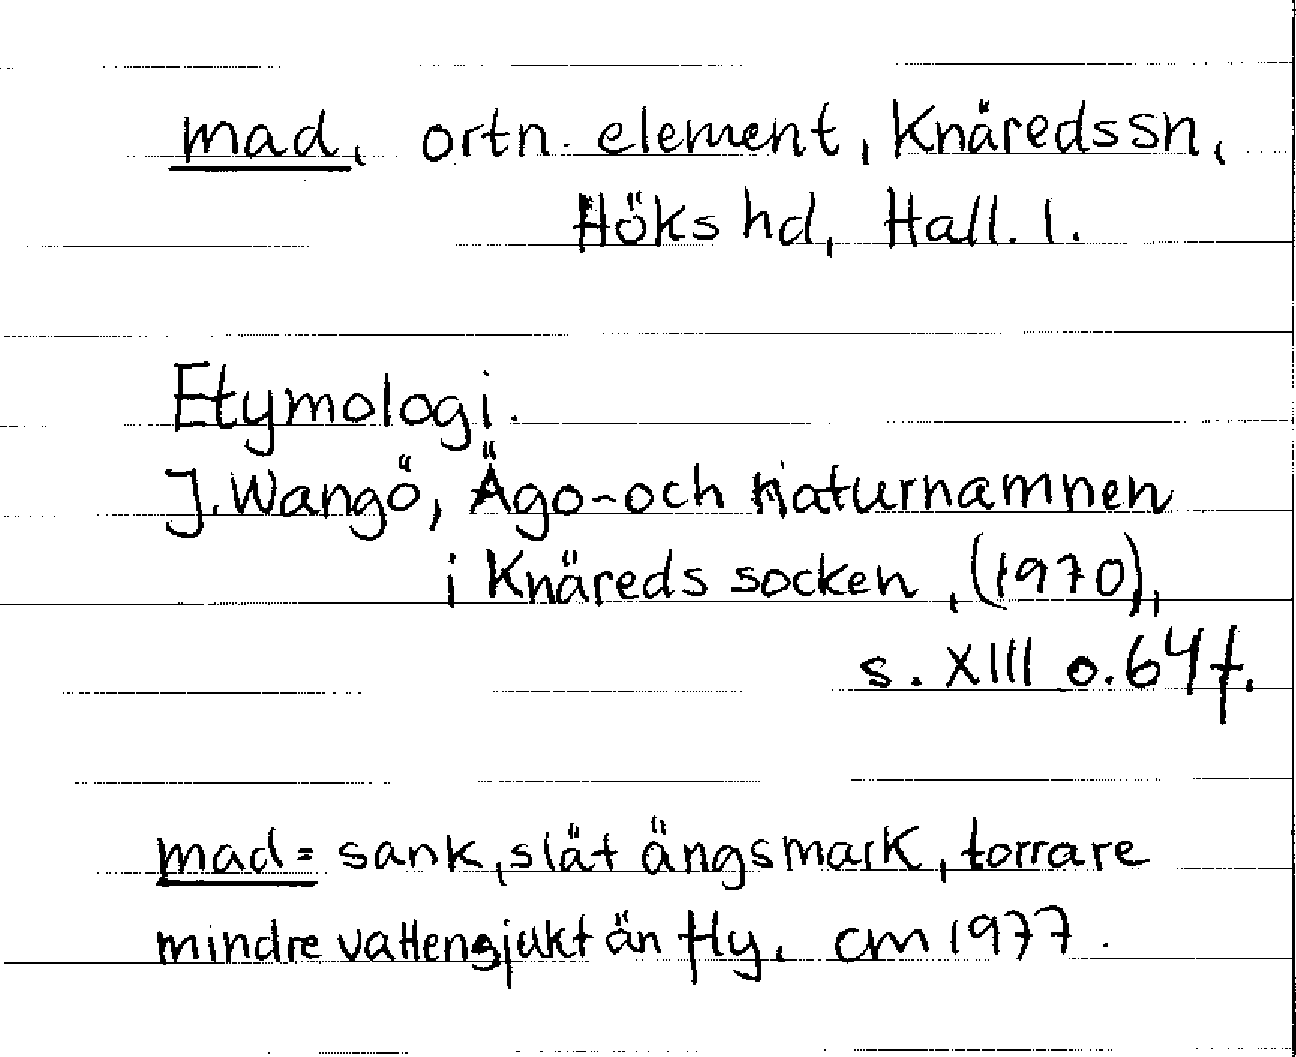 mad, ortn. element, Knäreds sn,
Höks hd, Hall. l.
Etymologi.
J. Wangö, Ägo- och naturnamnen
i Knäreds socken, (1970),
s. XIII o. 64 f.
mad = sank, slät ängsmark, torrare
mindre vattensjukt än fly. CM 1977.